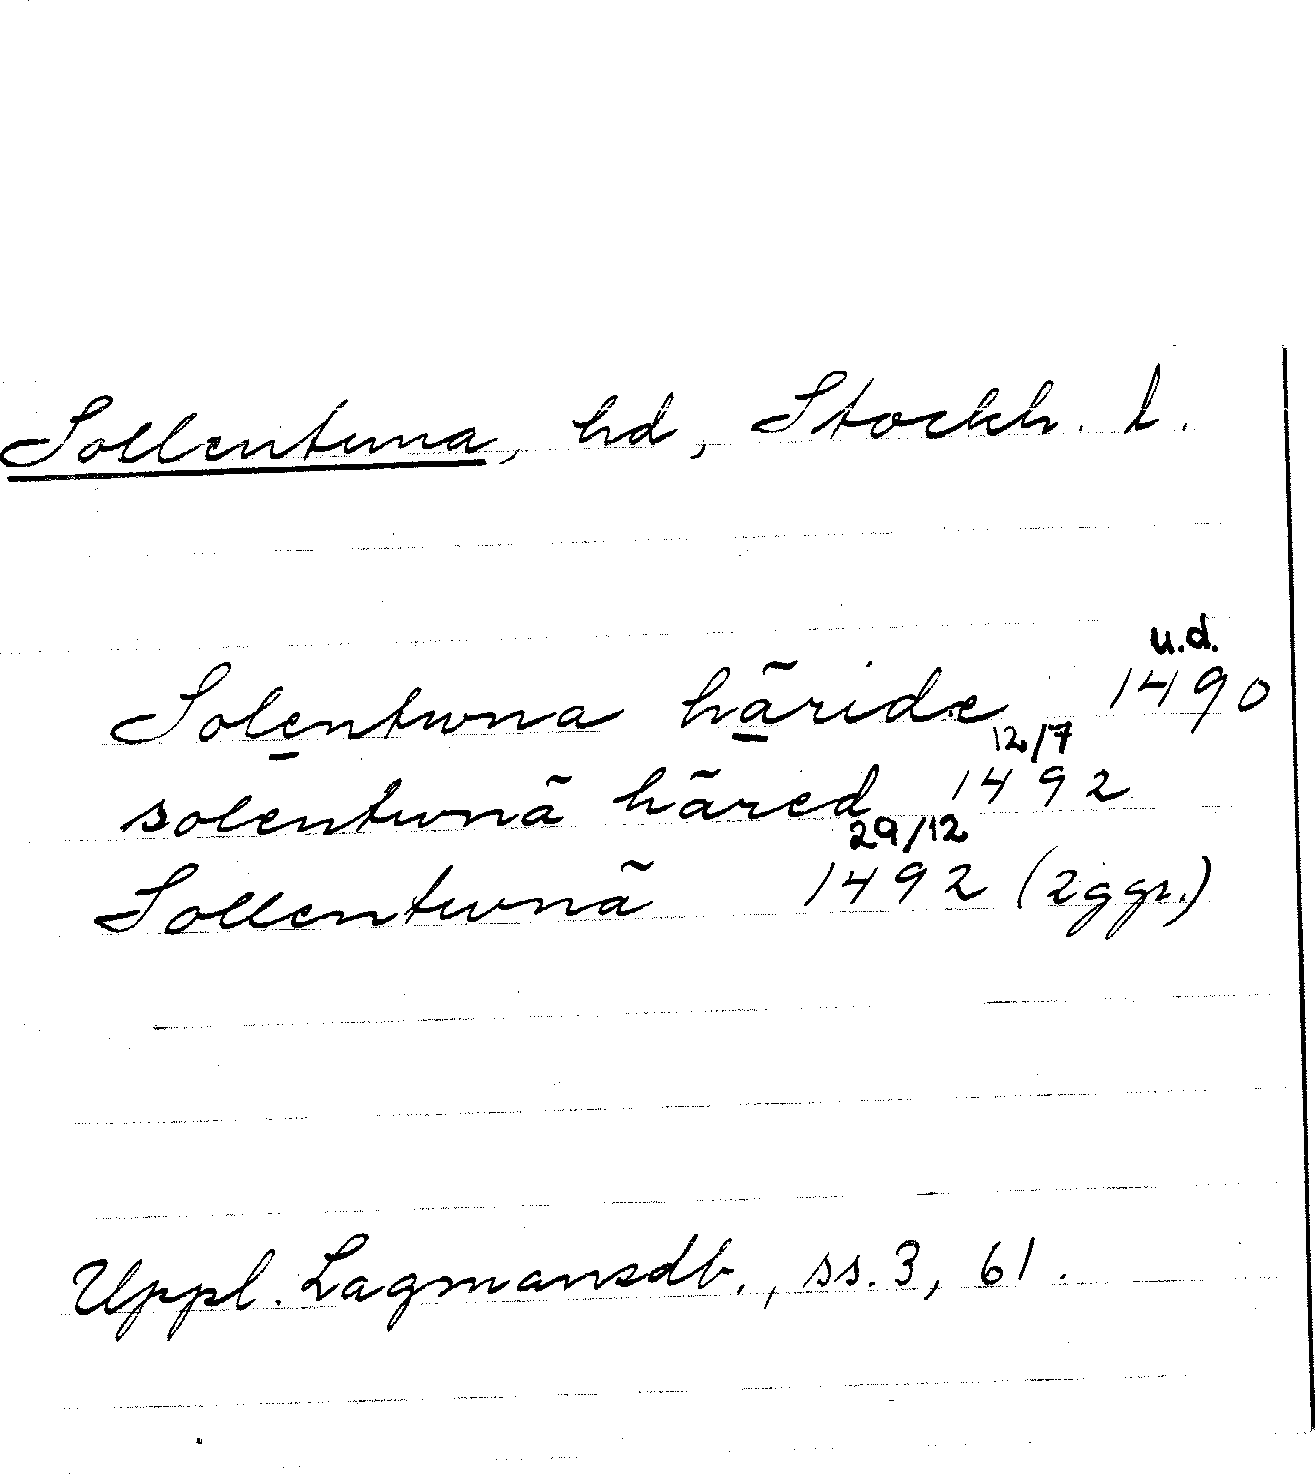 Sollentuna, hd, Stockh. l.
u.d.
Solentwna häride 1490
12/7
solentwnã hãred 1492
29/12
Sollentwnã 1492 (2ggr.)
Uppl. Lagmansdb., ss. 3, 61.